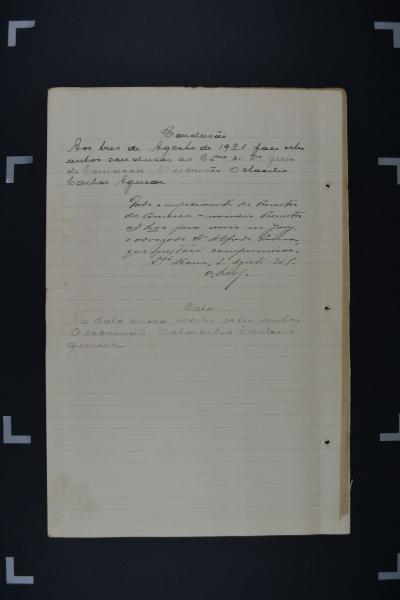 Conclusão
Aos tres de Agosto de 1921 faço estes
autos conclusos ao Exmo Sr. Dr. Juiz
de Comarca. O escrivão Octacilio
Carlos Aguiar
do Promotor
da Comarca - nomeio Promotor
ad hoc para
o advogado Dr Alfredo
que prestará compromisso.
Sta Maria, 3, Agosto, 921.
Data
Na data supra recebi estes autos
O escrivão, Octacilio Carlos A
guiar